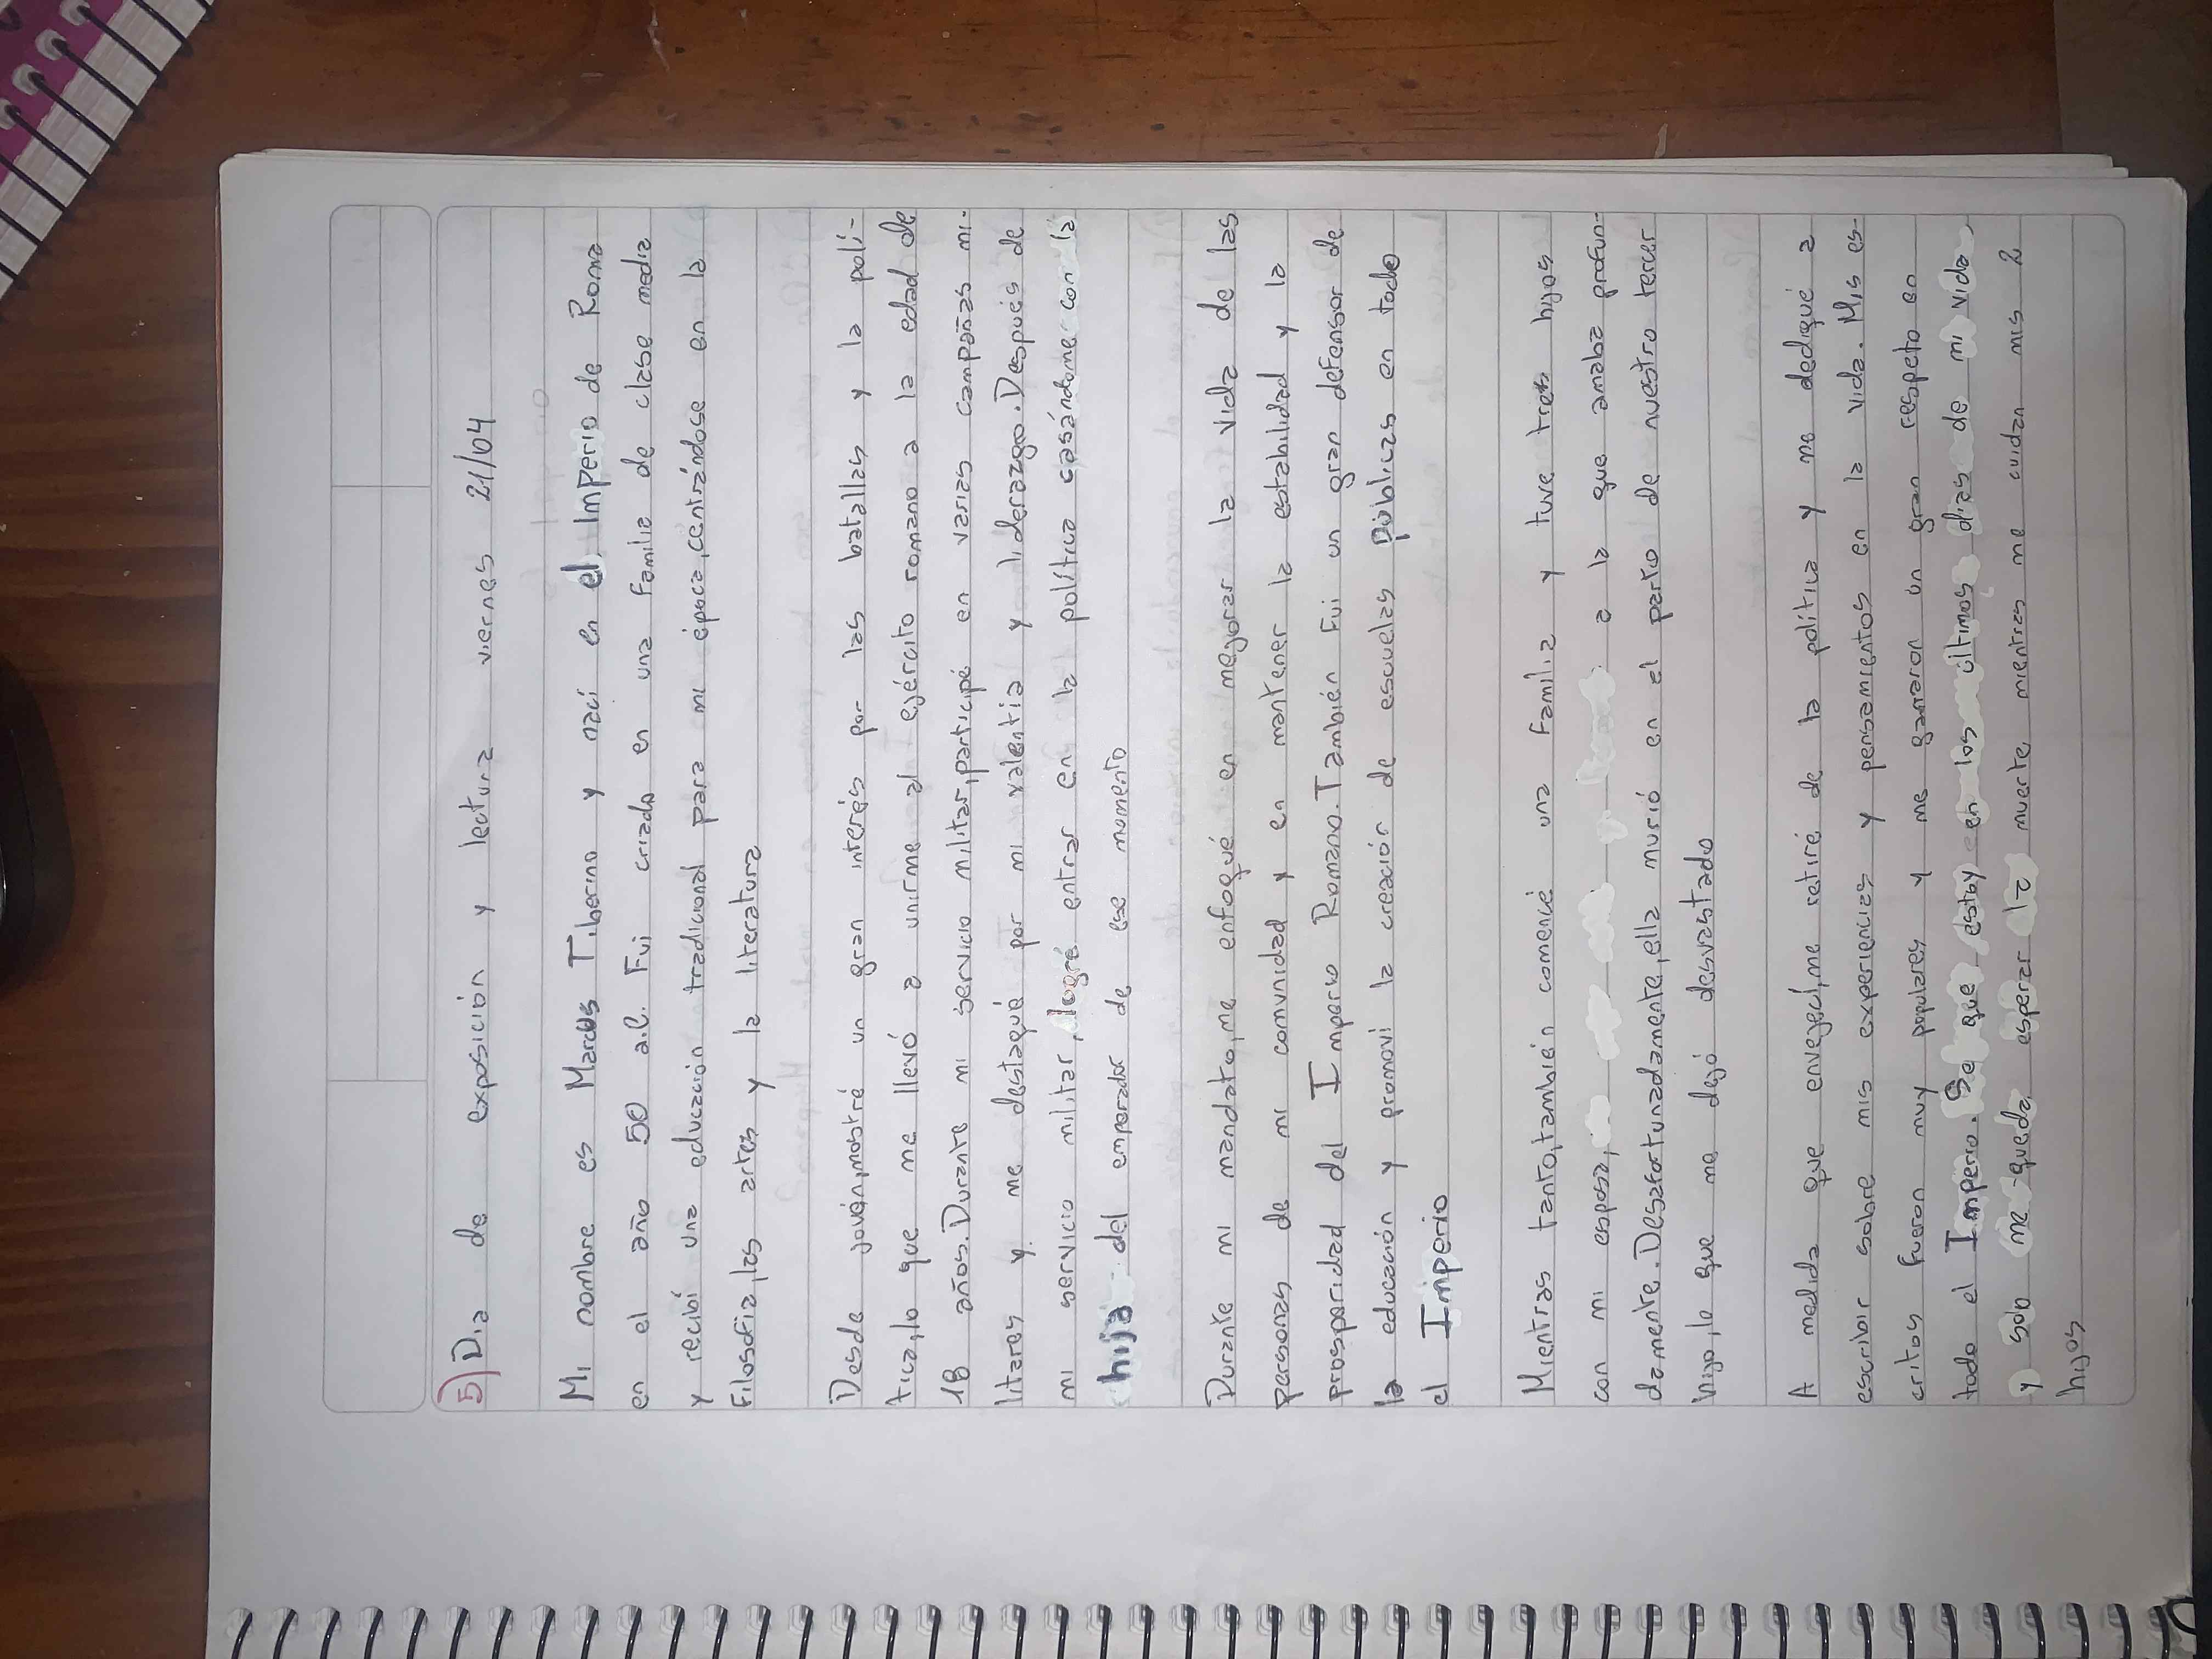 5) Dia de exposición y lectura viernes 21/04
Mi nombre es Marcus Tiberino y nací en el Imperio de Roma
en el año 50 a.C. Fui criado en una familia de clase media
y recibí una educación tradicional para mi época, centrándose en la
Filosofia, las artes y la literatura
Desde jovén, mostré un gran interés por las batallas y la polí-
tica, lo que me llevó a unirme al ejército romano a la edad de
18 años. Durante mi servicio militar, participé en varias campañas mi-
litares y me destaqué por mi valentia y liderazgo. Después de
mi servicio militar, logré entrar en la política casándome con la
hija del emperador de ese momento
Durante mi mandato, me enfoqué en mejorar la vida de las
personas de mi comunidad y en mantener la estabilidad y la
prosperidad del Imperio Romano. También fui un gran defensor de
la educación y promoví la creación de escuelas públicas en todo
el Imperio
Mientras tanto, también comencé una familia y tuve tres hijos
con mi esposa, a la que amaba profun-
damente. Desafortunadamente, ella murió en el parto de nuestro tercer
hijo, lo que me dejó desvastado
A medida que envejecí, me retiré de la política y me dediqué a
escribir sobre mis experiencias y pensamientos en la vida. Mis es-
critos fueron muy populares y me ganaron un gran respeto en
todo el Imperio. Se que estoy en los últimos dias de mi vida,
y solo me queda esperar la muerte mientras me cuidan mis 2
hijos